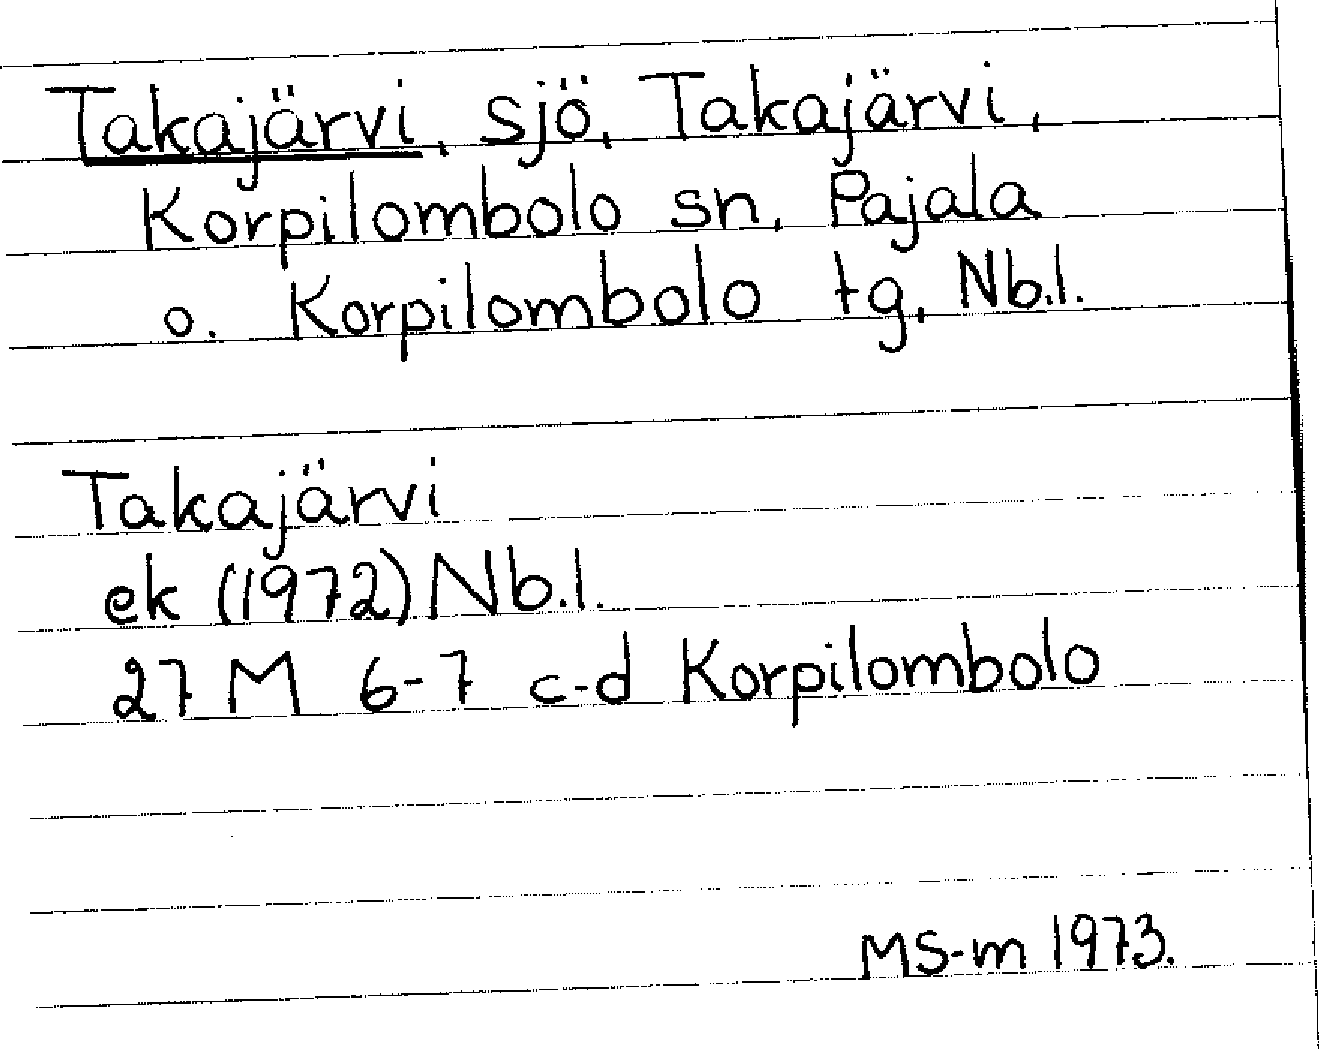 Takajärvi, sjö, Takajärvi,
Korpilombolo sn, Pajala
o. Korpilombolo tg, Nb.l.
Takajärvi
ek (1972) Nb.l.
27 M 6-7 c-d Korpilombolo
MS-m 1973.